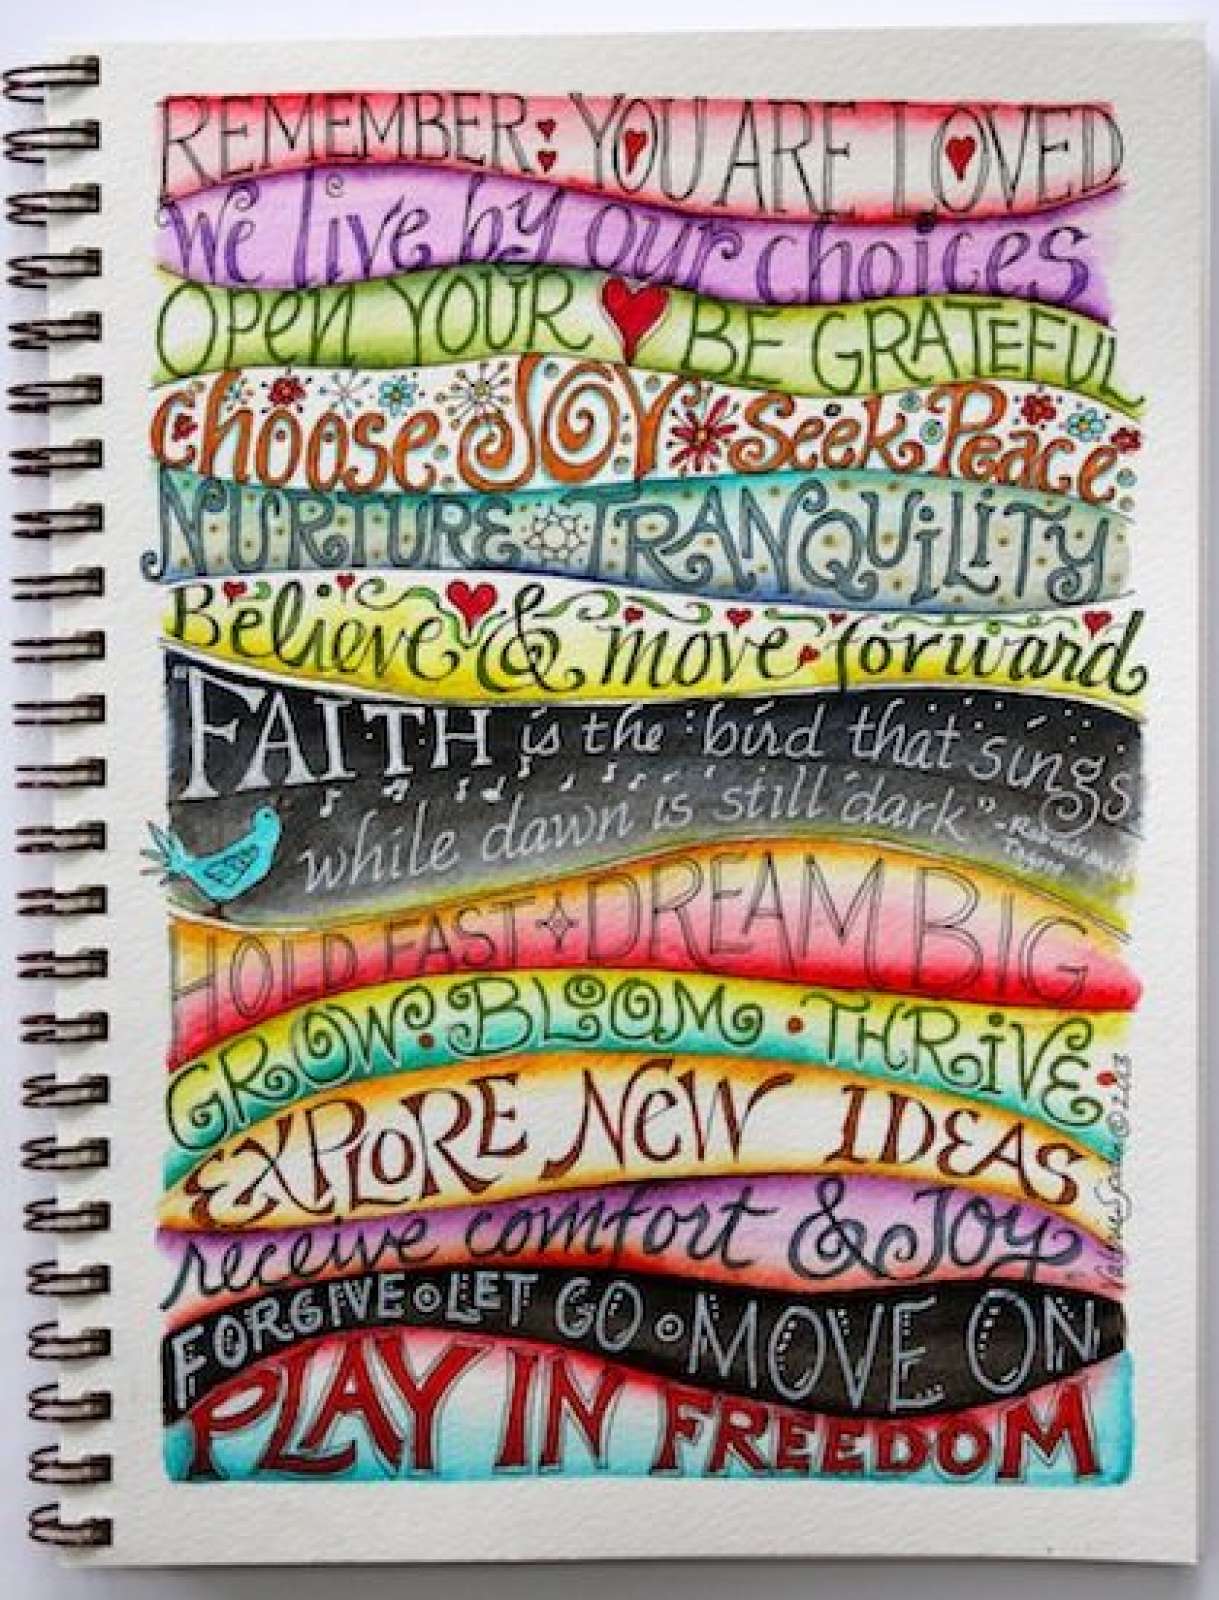 REMEMBER: YOU ARE LOVED
We live by our choices
OPEN YOUR BE GRATEFUL
Choose JOY Seek Peace
NURTURE TRANQUILITY
Believe & move forward
"FAITH is the bird that sings
while dawn is still dark"
HOLD FAST DREAM BIG
GROW. BLOOM. THRIVE.
EXPLORE NEW IDEAS
receive comfort & Joy
FORGIVE LET GO MOVE ON
PLAY IN FREEDOM
Valerie © 2013